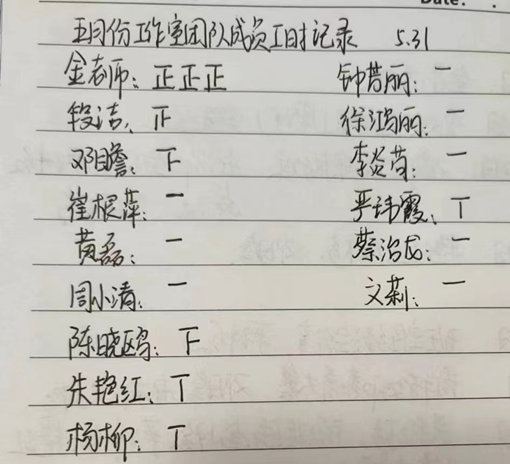 Date:
五月份工作室团队成员工时记录 5.31
金老师：正正正 钟苔丽：一
段洁：正 徐鸿丽：一
邓瞻：下 李炎茴：一
崔根萍：一 严玮霞：丅
黄磊：一 蔡治龙：一
周小清：一 文莉：一
陈晓鸥：下
朱艳红：丅
杨柳：丅